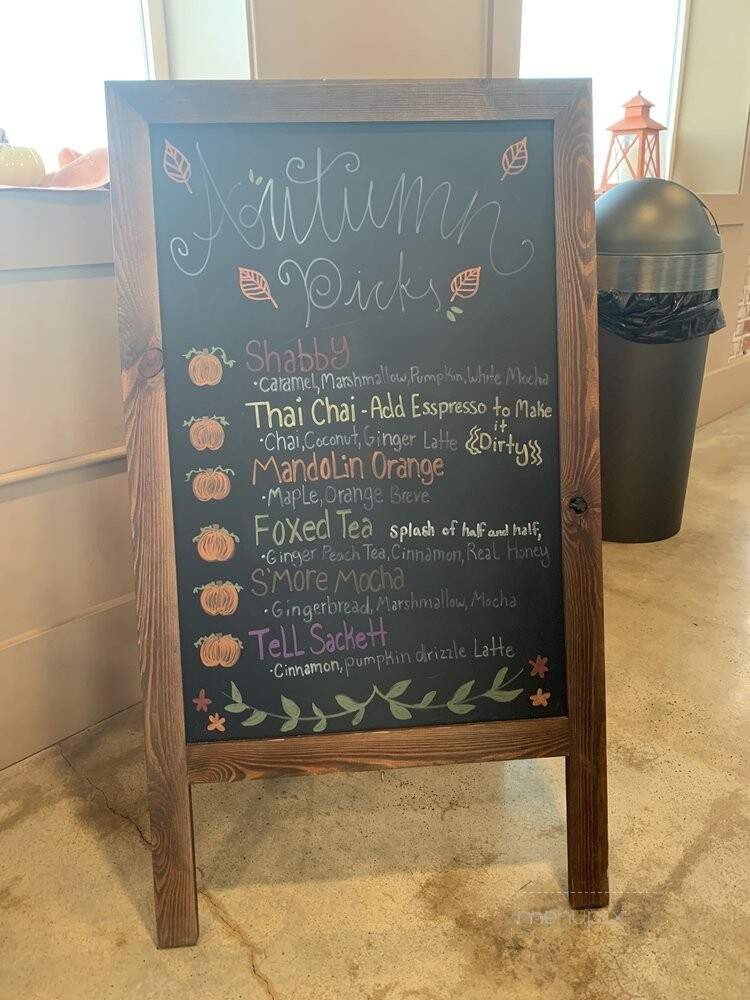 Autumn
Picks
Shabby
• Caramel, Marshmallow, Pumpkin, White Mocha
Thai Chai - Add Esspresso to Make
it
• Chai, Coconut, Ginger Latte Dirty
Mandolin Orange
• Maple, Orange Breve
Foxed Tea splash of half and half,
• Ginger Peach Tea, Cinnamon, Real Honey
S'More Mocha
• Gingerbread, Marshmallow, Mocha
Tell Sackett
• Cinnamon, pumpkin drizzle Latte